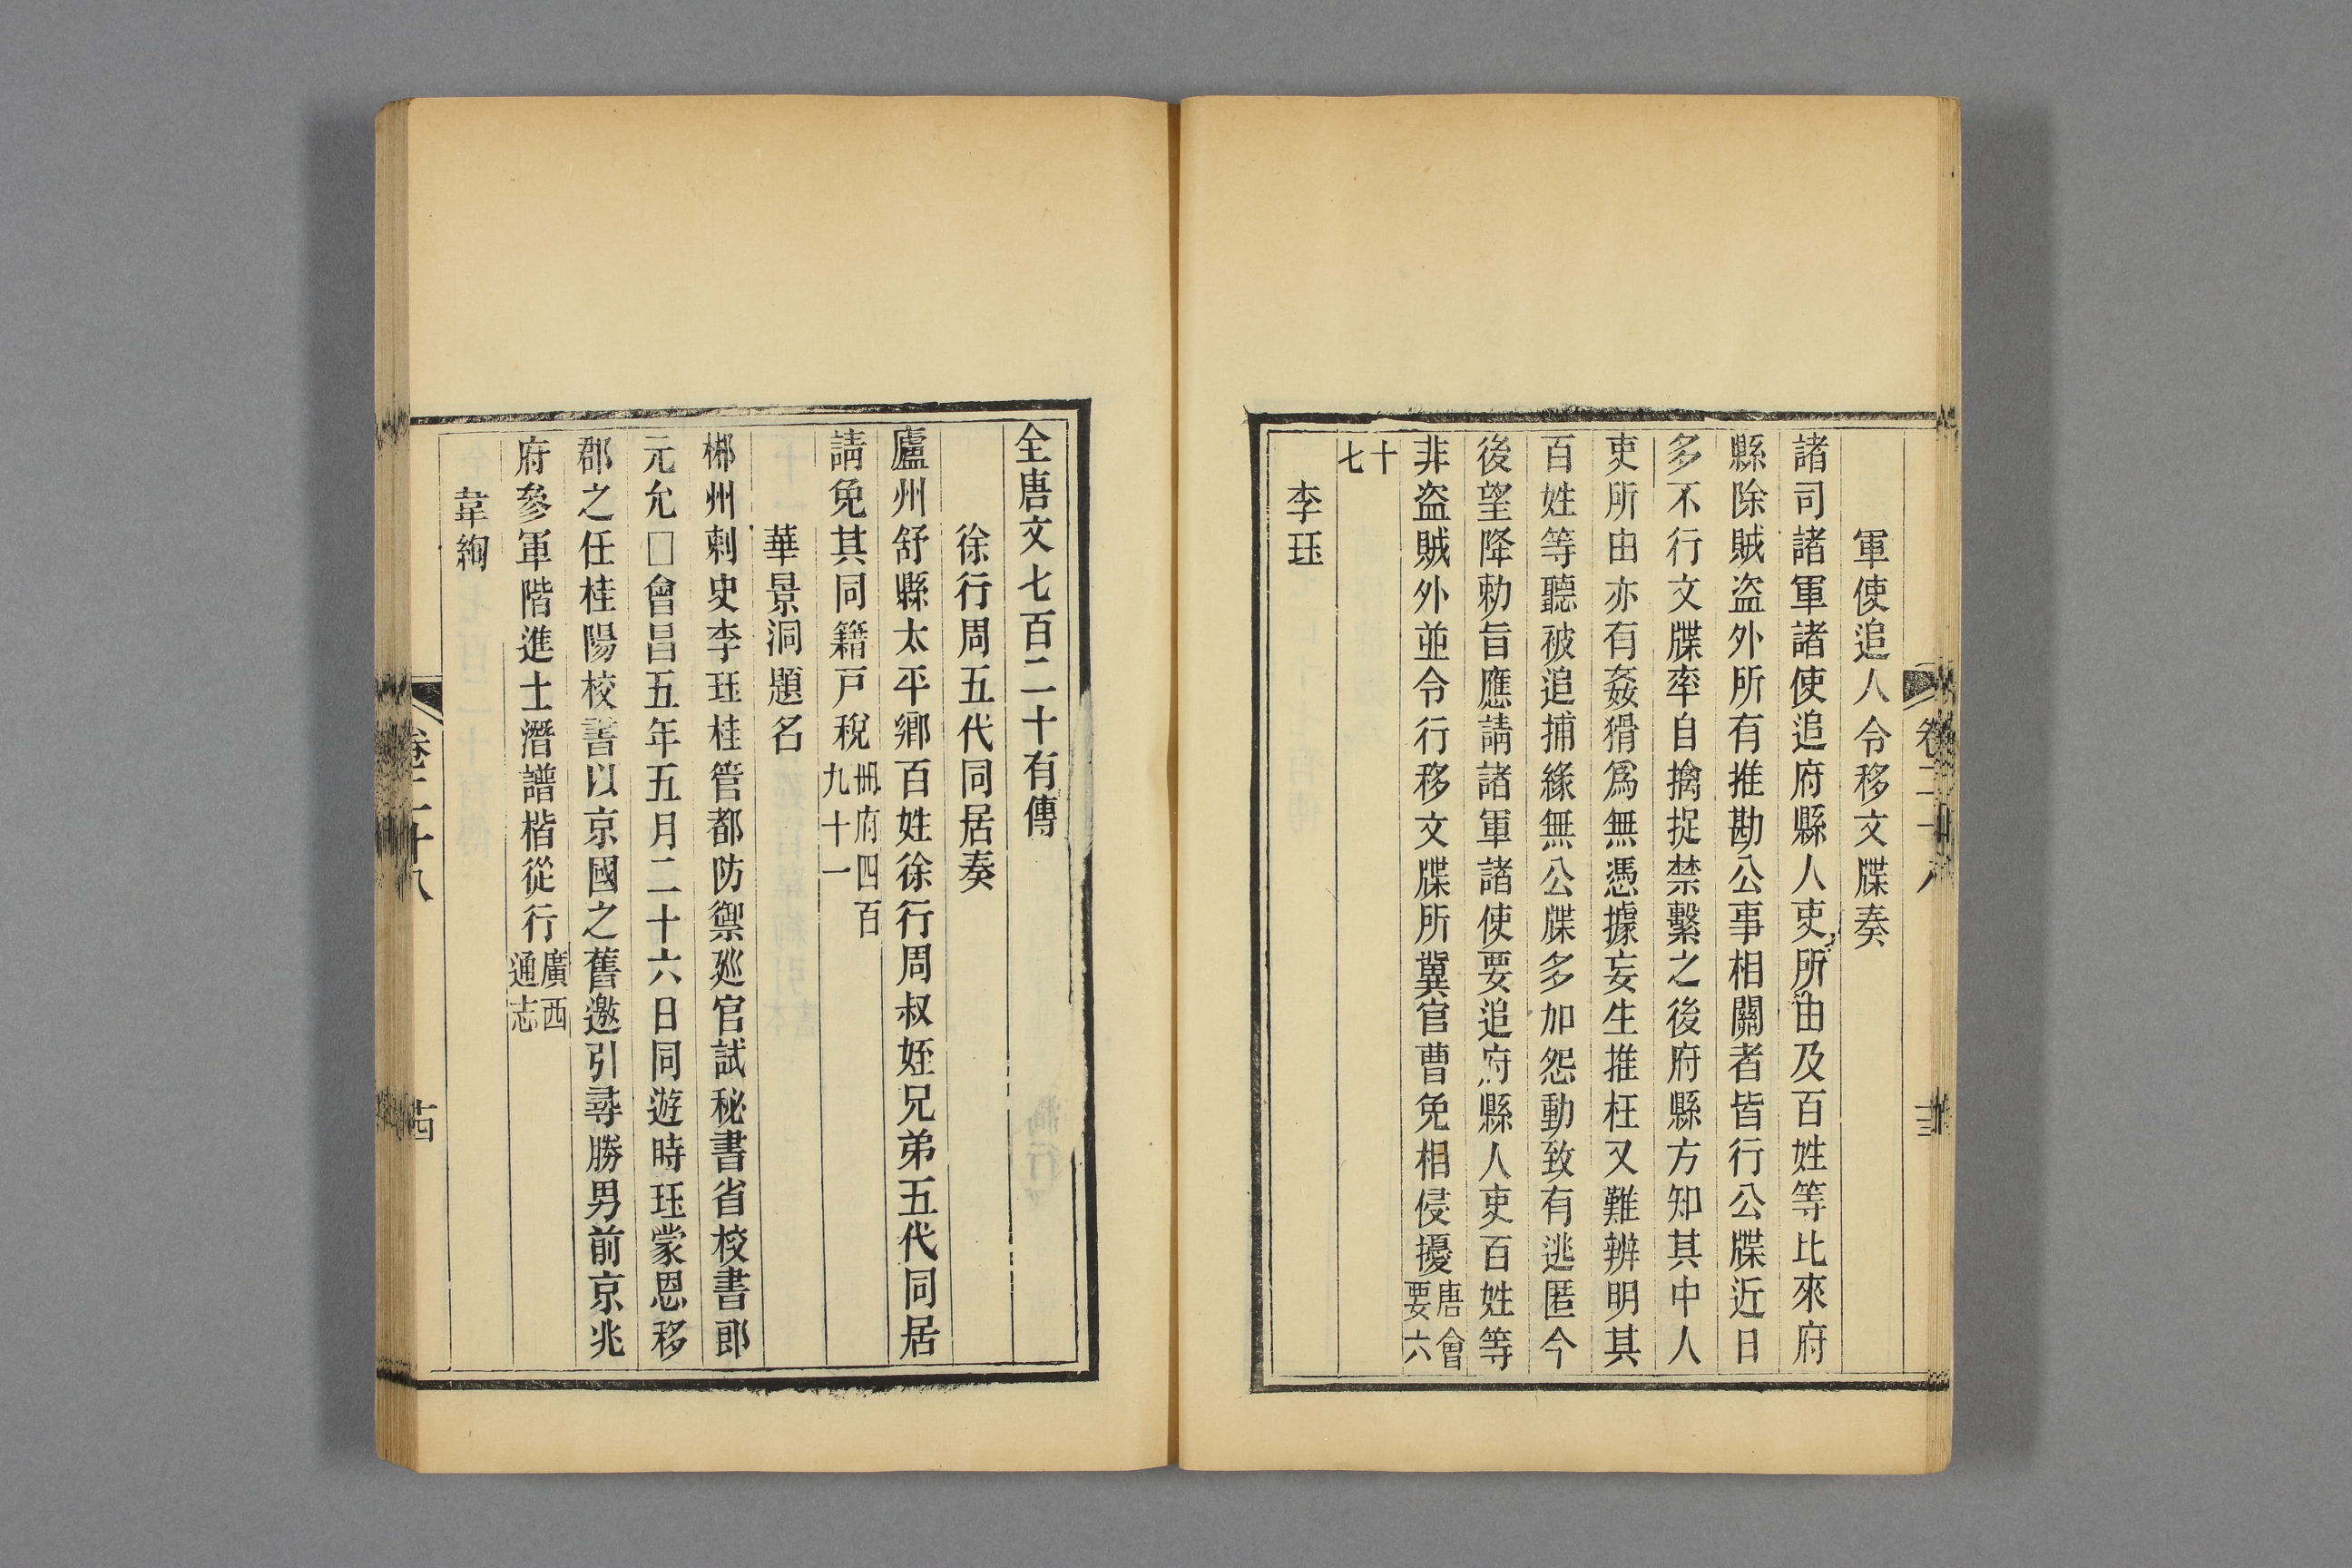 軍使追人令移文牒奏
諸司諸軍諸使追府縣人吏所由及百姓等比來府
縣除賊盜外所有推勘公事相關者皆行公牒近日
多不行文牒率自擒捉禁繫之後府縣方知其中人
吏所由亦有姦猾爲無憑據妄生推枉又難辨明其
百姓等聽被追捕緣無公牒多加怨動致有逃匿今
後望降勅旨應請諸軍諸使要追府縣人吏百姓等
非盜賊外並令行移文牒所冀官曹免相侵擾唐會要六
十七
李珏
卷二十八
全唐文七百二十有傳
徐行周五代同居奏
廬州舒縣太平鄉百姓徐行周叔姪兄弟五代同居
請免其同籍戸稅冊府四百九十一
華景洞題名
郴州刺史李珏桂管都防禦廵官試秘書省校書郎
元允□會昌五年五月二十六日同遊時珏蒙恩移
郡之任桂陽校書以京國之舊邀引尋勝男前京兆
府參軍階進士潛譜楷從行廣西通志
韋絢
卷二十八